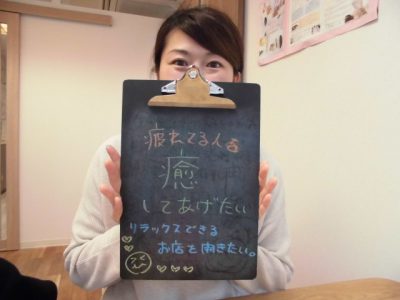 疲れてる人を
癒
してあげたい
リラックスできる
お店を開きたい。